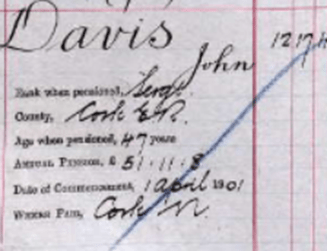 Davis
John
Rank when pensioned, Sergt.
County, Cork E.R.
Age when pensioned, 47 years
ANNUAL PENSION, £ 51 . 11 . 8
Date of Commencement, 1 April 1901
WHERE PAID, Cork N.